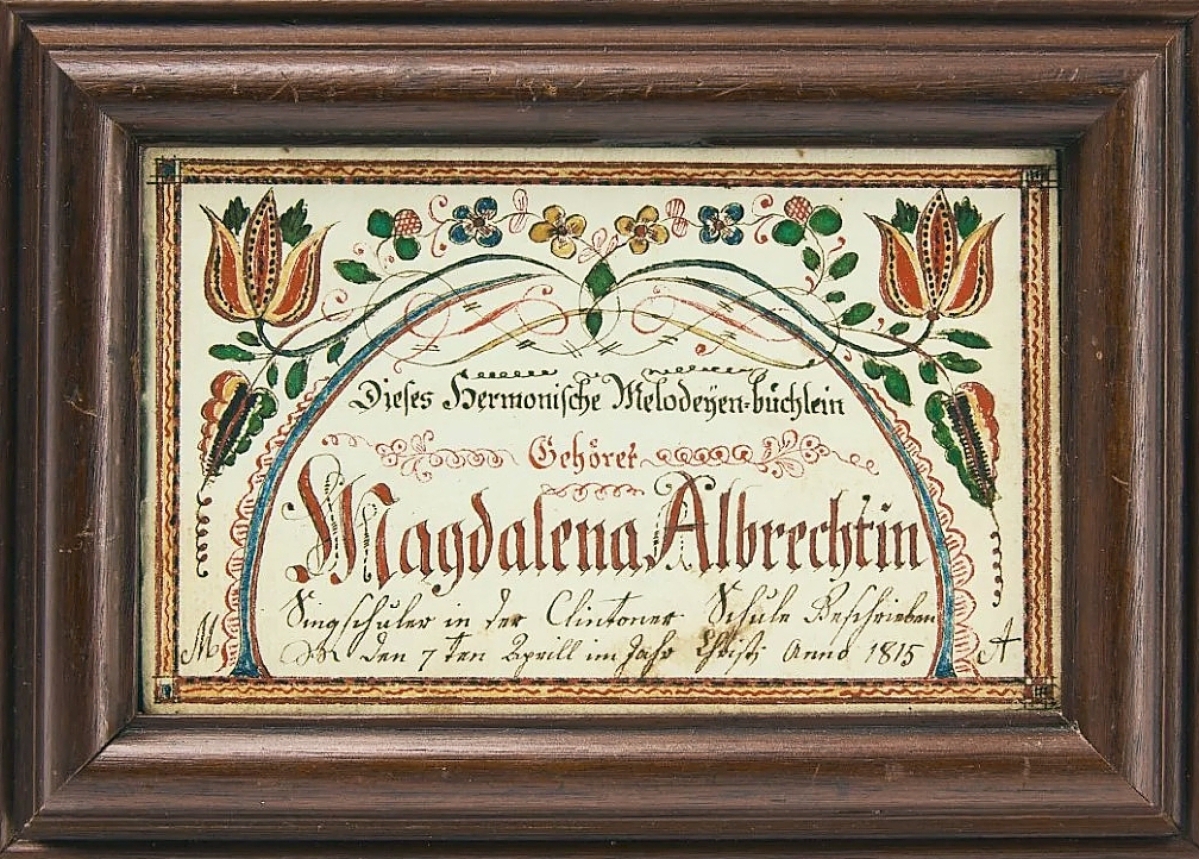 Dieses Hermonische Melodeyen-büchlein
Gehöret
Magdalena Albrechtin
Singschüler in der Clintoner Schule Beschrieben
Den 7ten Aprill im Jahr Christi Anno 1815
M A